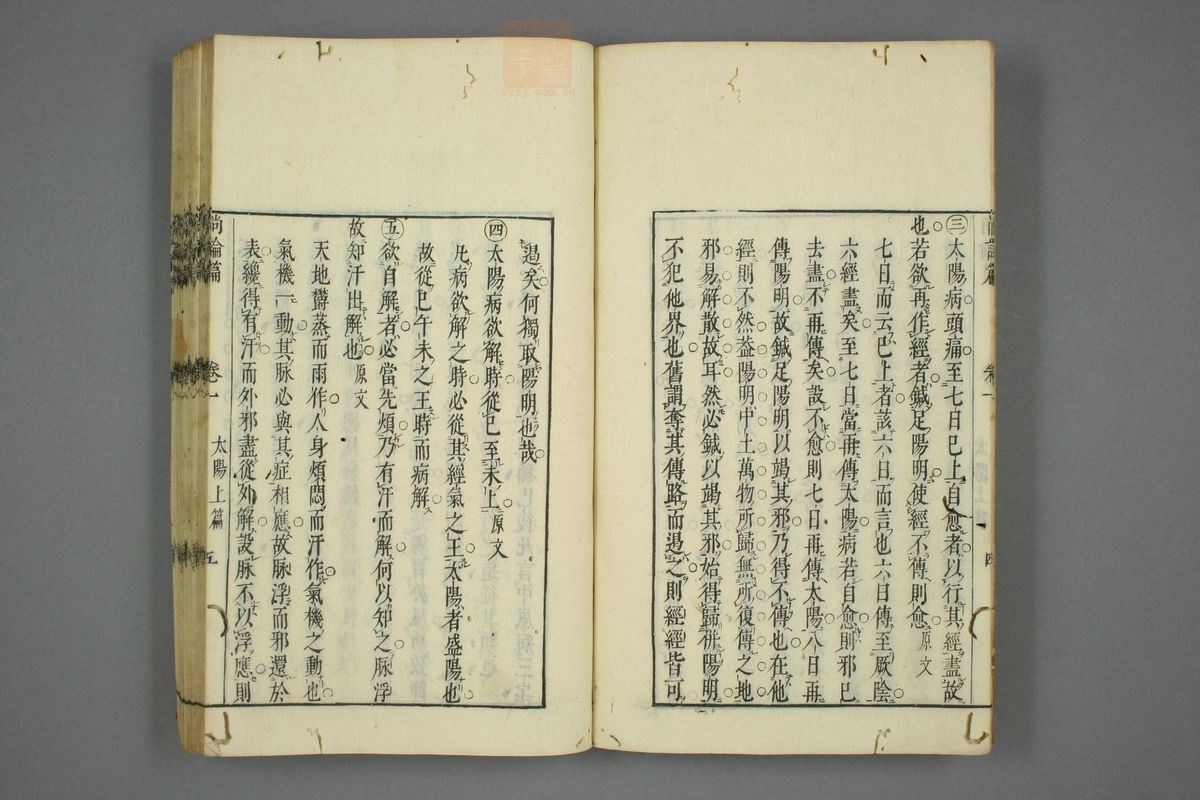 ㊂太陽病頭痛至七日已上自愈者以行其經盡故
也若欲再作經者鍼足陽明使經不傳則愈 原文
七日而云已上者該六日而言也六日傳至厥陰
六經盡矣至七日當再傳太陽病若自愈則邪已
去盡不再傳矣設不愈則七日再傳太陽八日再
傳陽明故鍼足陽明以竭其邪乃得不傳也在他
經則不然葢陽明中土萬物所歸無所復傳之地
邪易解散故耳然必鍼以竭其邪始得歸併陽明
不犯他界也舊謂奪其傳路而遏之則經經皆可
遏矣何獨取陽明也哉
㊃太陽病欲解時從巳至未上 原文
凡病欲解之時必從其經氣之王太陽者盛陽也
故從巳午未之王時而病解
㊄欲自解者必當先煩乃有汗而解何以知之脉浮
故知汗出解也 原文
天地欝蒸而雨作人身煩悶而汗作氣機之動也
氣機一動其脉必與其症相應故脉浮而邪還於
表纔得有汗而外邪盡從外解設脉不以浮應則
尚論篇 卷一 太陽上篇 五